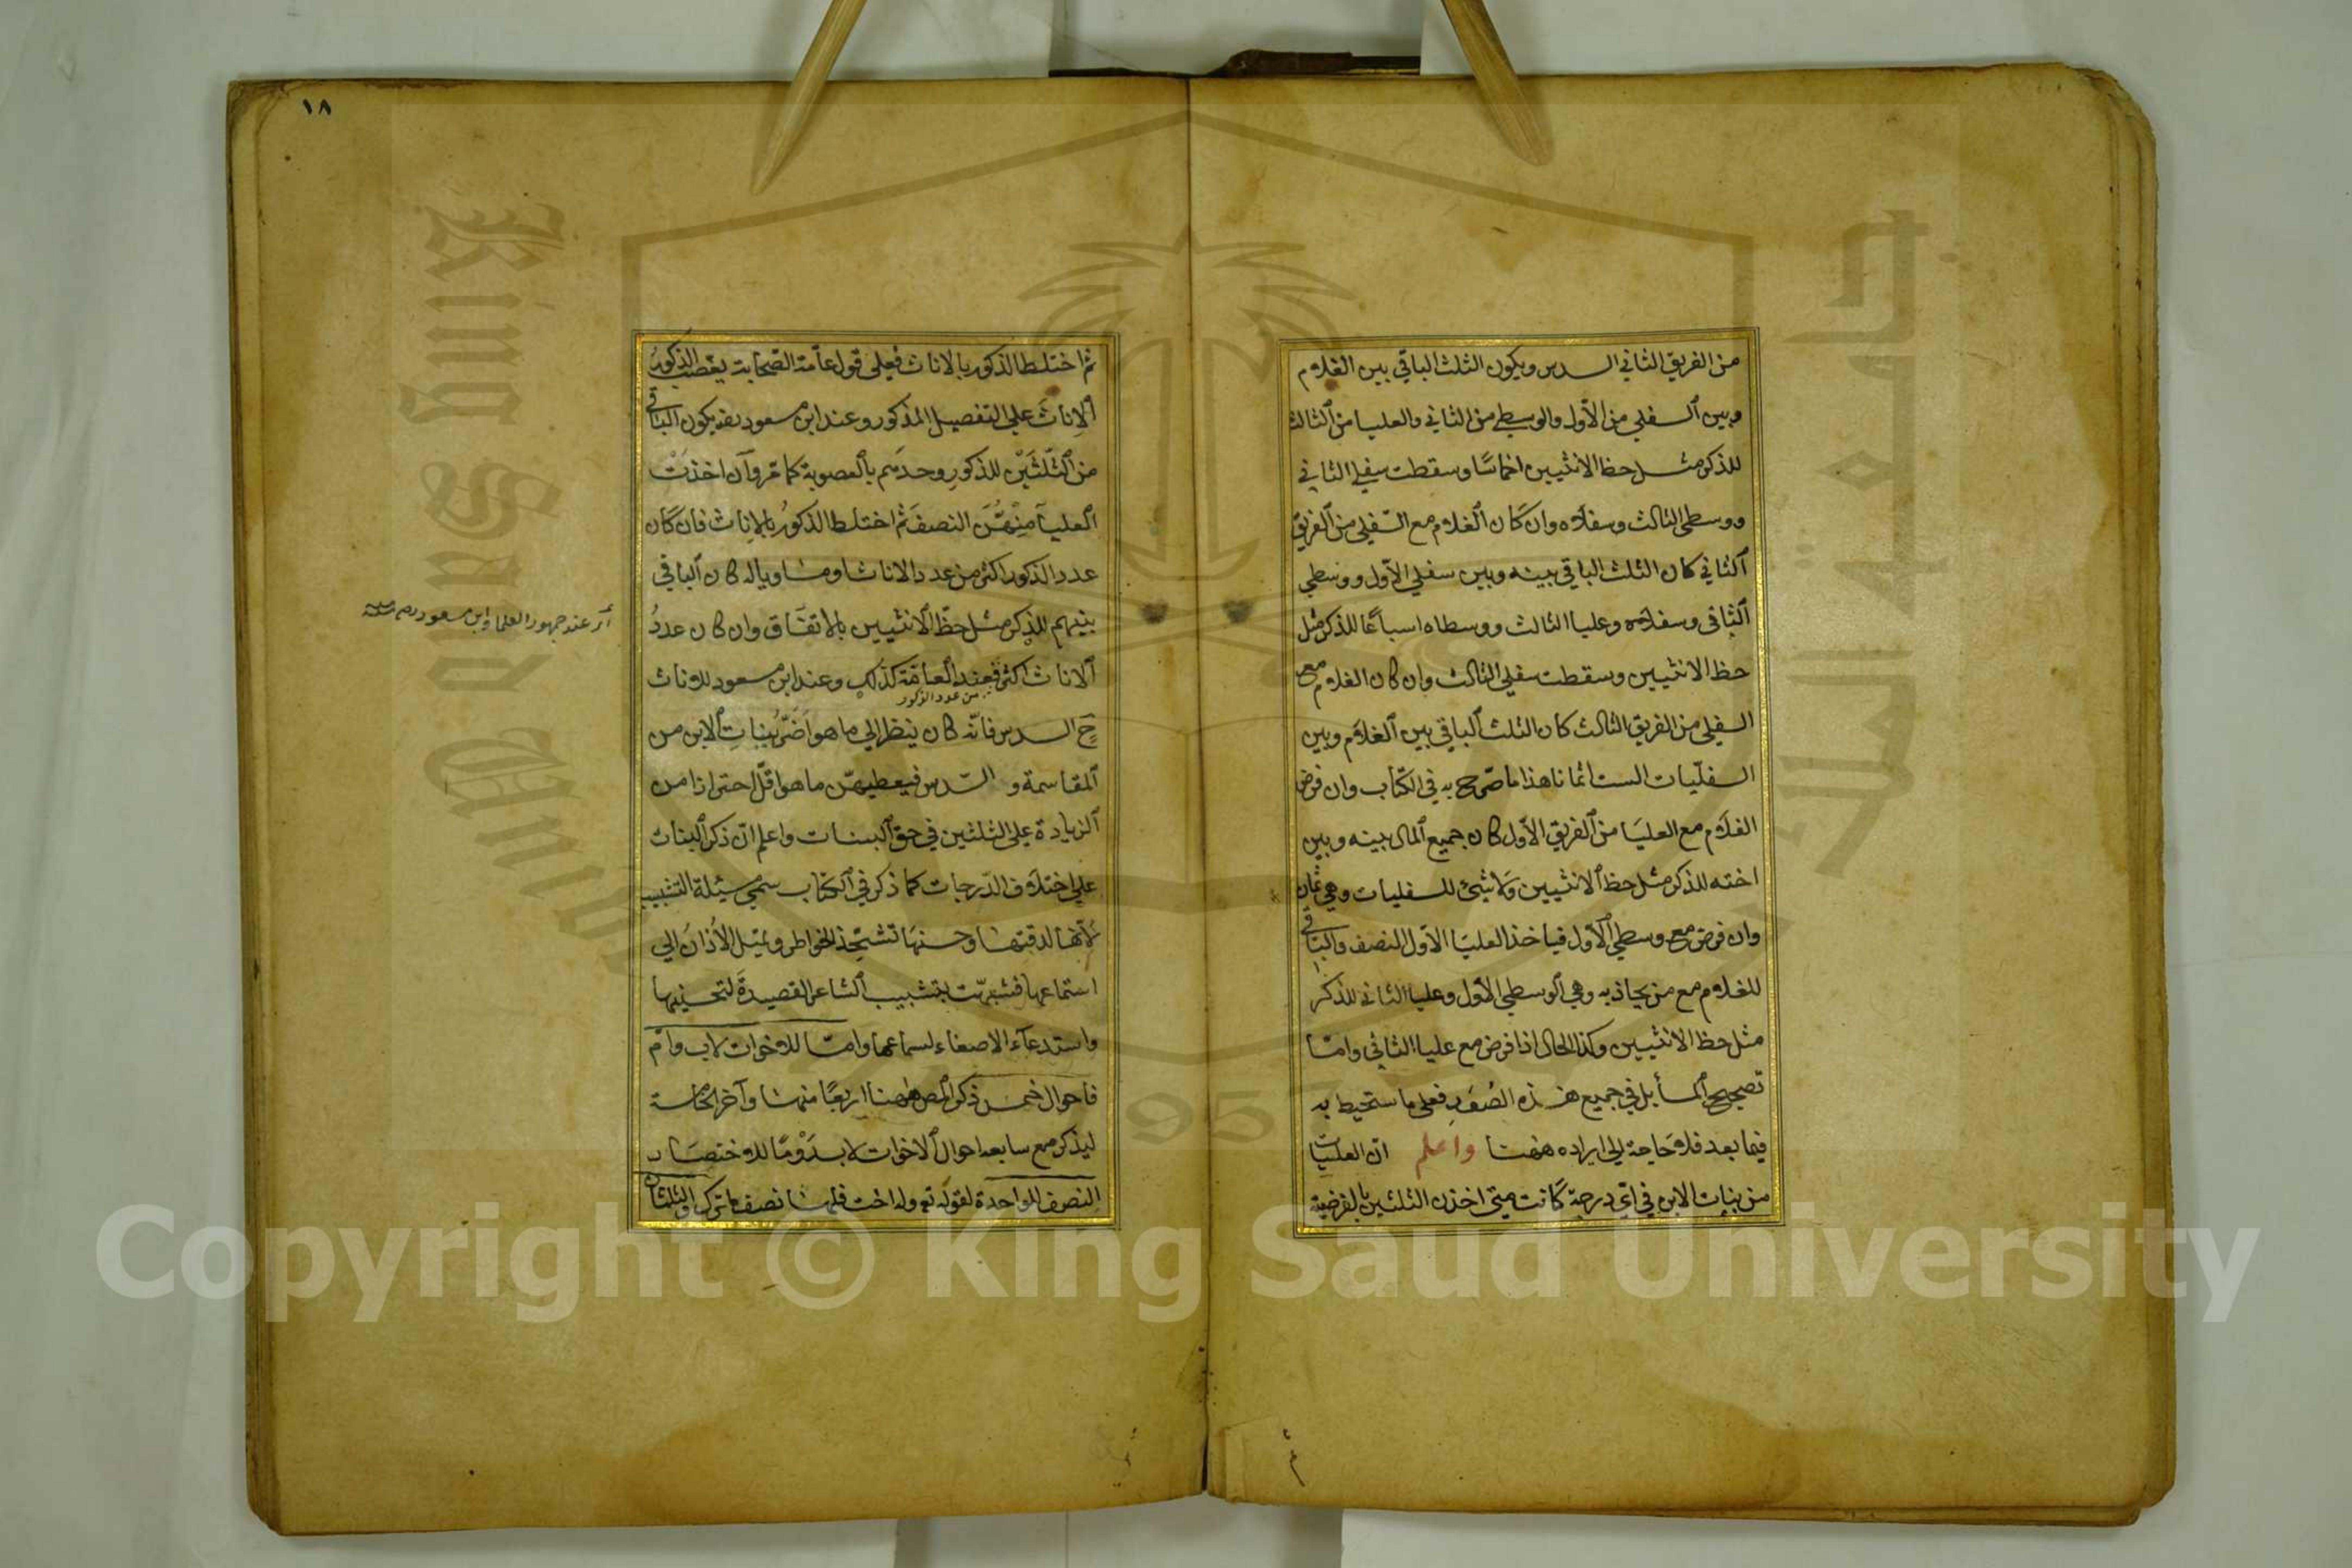 من الفريق الثاني السدس ويكون الثلث الباقي بين الغلام
وبين السفلي من الاول والوسطي من الثاني والعليا من الثالث
للذكر مثل حظ الانثيين اخماسًا وسقطت سفلي الثاني
ووسطي الثالث وسفلاه وان كان الغلام مع السّفلي من الفريق
الثاني كان الثلث الباقي بينه وبين سفلي الاوّل ووسطي
الثاني وسفلاه وعليا الثالث ووسطاه اسباعًا للذكر مثل
حظ الانثيين وسقطت سفلي الثالث وان كان الغلام مع
السفلي من الفريق الثالث كان الثلث الباقي بين الغلام وبين
السفليّات الست اثمانا هذا ما صرّح به في الكتاب وان فرض
الغلام مع العليا من الفريق الاوّل كان جميع المال بينه وبين
اخته للذكر مثل حظ الانثيين ولا شيئ للسفليات وهي ثمان
وان فرض مع وسطي الاول فياخذ العليا الاوّل النصف والباقي
للغلام مع من يحاذيه وهي الوسطي الاوّل وعليا الثاني للذكر
مثل حظ الانثيين وكذا الحال اذا فرض مع عليا الثاني وامّا
تصحيح المسأيل في جميع هذه الصُوَر فعلى ما ستحيط به
فيما بعد فلا حاجة الي ايراده ههنا واعلم انّ العليّات
من بنات الابن في ايّ درجة كانت متى اخذن الثلثين بالفرضية
١٨
ثم اختلط الذكور بالاناث فعلي قول عامّة الصّحابة يعصّب الذكورُ
الاِناثَ علي التفصيل المذكور وعند ابن مسعود رضه يكون الباقي
من الثُلثَيْن للذكورِ وحدَهم بالعصوبة كما مرّ وان اخذَتْ
العليا منْهُنَّ النصفَ ثم اختلط الذكورُ بالاِناث فان كان
عدد الذكور اكثر من عدد الاناث او مساويا له كان الباقي
بينهم للذكر مثل حظّ الانثيين بالاتفاق وان كان عددُ
أَىْ عند جمهور العلما وابن مسعود
الاناث اكثر فعند العامّة كذلك وعند ابن مسعود للاناث
من عدد الذكور
ح السدس فانّه كان ينظر الي ما هو اَضَرُّ بِبناتِ الابن من
المقاسمة والسّدس فيعطيهنّ ما هو اقلّ احترازا من
الزيادة علي الثلثين في حق البنات واعلم انّ ذكر البنات
علي اختلاف الدّرجات كما ذكر في الكتاب سمي مسئلة التشبيب
لأنّها لدقتها وحسنها تشحّذ الخواطر وتميّل الاُذان الي
استماعها فشبهت بتشبيب الشاعر القصيدة لتحسينها
واستدعآء الاصغاء لسماعها وامّا للاخوات لاب وامّ
فاحوال خمس ذكر المصنف ههنا اربعًا منها وآخر الخامسة
ليذكر مع سابعة احوال الاخوات لاب رَوْمًا للاختصار
النصف للواحدة لقوله تع وله اخت فلها نصف ما ترك والثلثان